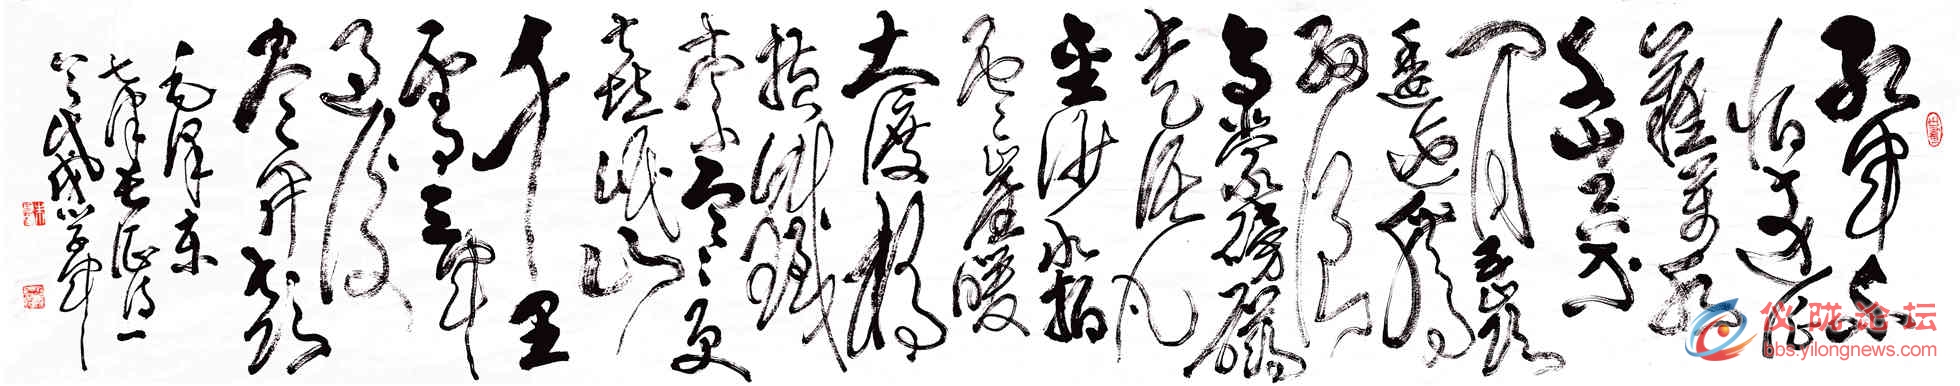 红军不
怕远征
難萬水
千山只等
闲五岭
逶迤腾
细浪
乌蒙磅礴
走泥丸
金沙水拍
云崖暖
大渡桥
横铁
索寒更
喜岷山
千里
雪三军
过后
尽开颜
毛泽东
七律长征诗一
首戊戌
仪陇论坛
bbs.yilongnews.com